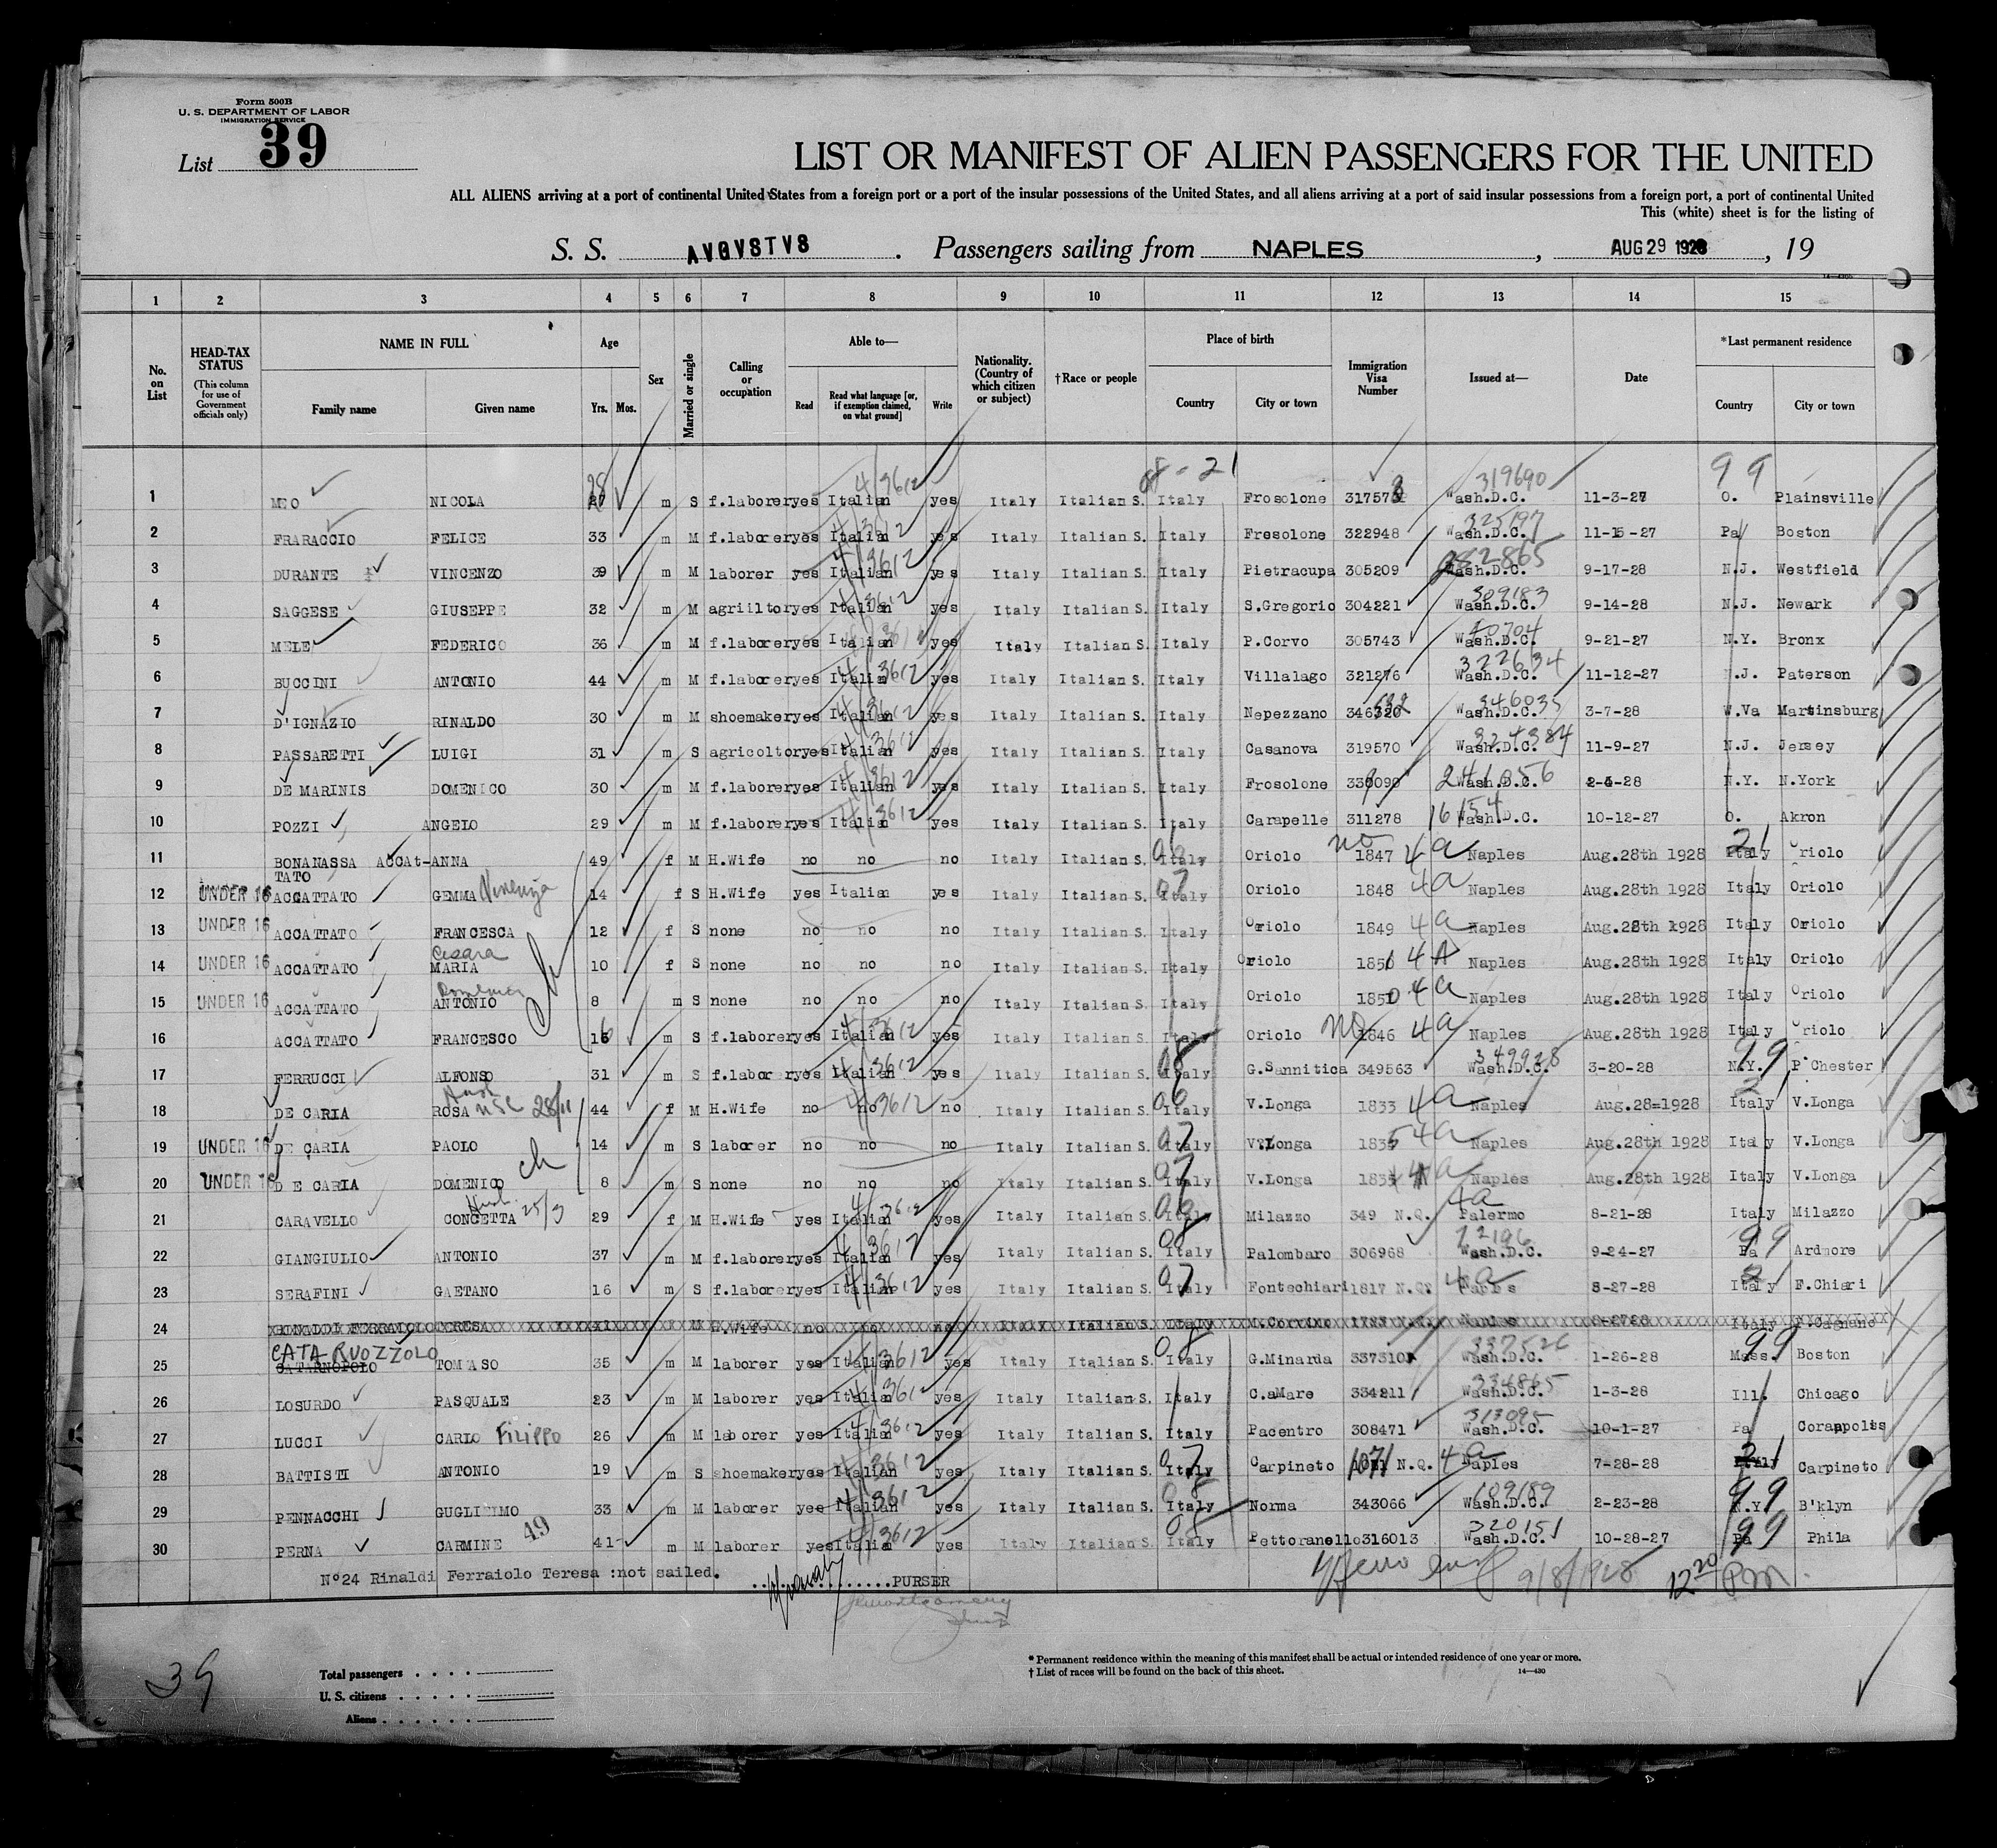 Form 500B
U. S. DEPARTMENT OF LABOR
IMMIGRATION SERVICE
List 39
LIST OR MANIFEST OF ALIEN PASSENGERS FOR THE UNITED
ALL ALIENS arriving at a port of continental United States from a foreign port or a port of the insular possessions of the United States, and all aliens arriving at a port of said insular possessions from a foreign port, a port of continental United
This (white) sheet is for the listing of
S. S. AVGVSTVS . Passengers sailing from NAPLES , AUG 29 1928 , 19
1 2 3 4 5 6 7 8 9 10 11 12 13 14 15
No. on List
HEAD-TAX STATUS
(This column for use of Government officials only)
NAME IN FULL
Family name Given name
Age
Yrs. Mos.
Sex
Married or single
Calling or occupation
Able to—
Read Read what language [or, if exemption claimed, on what ground] Write
Nationality. (Country of which citizen or subject)
†Race or people
Place of birth
Country City or town
Immigration Visa Number
Issued at—
Date
*Last permanent residence
Country City or town
08-21 319690 99
1 MEO NICOLA 28 m S f.laborer yes Italian yes Italy Italian S. Italy Frosolone 317573 Wash.D.C. 11-3-27 O. Plainsville
2 FRARACCIO FELICE 33 m M f.laborer yes Italian yes Italy Italian S. Italy Frosolone 322948 Wash.D.C. 325197 11-15-27 Pa Boston
3 DURANTE VINCENZO 39 m M laborer yes Italian yes Italy Italian S. Italy Pietracupa 305209 Wash.D.C. 282865 9-17-28 N.J. Westfield
4 SAGGESE GIUSEPPE 32 m M agriilto yes Italian yes Italy Italian S. Italy S.Gregorio 304221 Wash.D.C. 309183 9-14-28 N.J. Newark
5 MELE FEDERICO 36 m M f.laborer yes Italian yes Italy Italian S. Italy P.Corvo 305743 Wash.D.C. 9-21-27 N.Y. Bronx
6 BUCCINI ANTONIO 44 m M f.laborer yes Italian yes Italy Italian S. Italy Villalago 321276 Wash.D.C. 322634 11-12-27 N.J. Paterson
7 D'IGNAZIO RINALDO 30 m M shoemaker yes Italian yes Italy Italian S. Italy Nepezzano Wash.D.C. 346035 3-7-28 W.Va Martinsburg
8 PASSARETTI LUIGI 31 m S agricolto yes Italian yes Italy Italian S. Italy Casanova 319570 Wash.D.C. 324384 11-9-27 N.J. Jersey
9 DE MARINIS DOMENICO 30 m M f.laborer yes Italian yes Italy Italian S. Italy Frosolone Wash.D.C. N.Y. N.York
10 POZZI ANGELO 29 m M f.laborer yes Italian yes Italy Italian S. Italy Carapelle 311278 Wash.D.C. 10-12-27 O. Akron
11 BONANASSA ACCAT-TATO ANNA 49 f M H.Wife no no no Italy Italian S. Italy Oriolo no 1847 4a Naples Aug.28th 1928 Italy Oriolo
12 UNDER 16 ACCATTATO GEMMA Vincenza 14 f S H.Wife yes Italian yes Italy Italian S. Italy Oriolo 1848 4a Naples Aug.28th 1928 Italy Oriolo
13 UNDER 16 ACCATTATO FRANCESCA 12 f S none no no no Italy Italian S. Italy Oriolo 1849 4a Naples Aug.28th 1928 Italy Oriolo
14 UNDER 16 ACCATTATO MARIA Cesara 10 f S none no no no Italy Italian S. Italy Oriolo 1851 4A Naples Aug.28th 1928 Italy Oriolo
15 UNDER 16 ACCATTATO ANTONIO 8 m S none no no no Italy Italian S. Italy Oriolo 1850 4a Naples Aug.28th 1928 Italy Oriolo
16 ACCATTATO FRANCESCO 16 m S f.laborer yes Italian yes Italy Italian S. Italy Oriolo no 1846 4a Naples Aug.28th 1928 Italy Oriolo
17 FERRUCCI ALFONSO 31 m S f.laborer yes Italian yes Italy Italian S. Italy G.Sannitica 349563 Wash.D.C. 349928 3-20-28 N.Y. P.Chester
18 DE CARIA ROSA Husb USC 28/11 44 f M H.Wife no no no Italy Italian S. Italy V.Longa 1833 4a Naples Aug.28=1928 Italy V.Longa
19 UNDER 16 DE CARIA PAOLO 14 m S laborer no no no Italy Italian S. Italy V.Longa 1835 4a Naples Aug.28th 1928 Italy V.Longa
20 UNDER 16 DE CARIA DOMENICO ch 8 m S none no no no Italy Italian S. Italy V.Longa 1834 4a Naples Aug.28th 1928 Italy V.Longa
21 CARAVELLO CONCETTA Husb. 25/3 29 f M H.Wife yes Italian yes Italy Italian S. Italy Milazzo 349 N.Q. 4a Palermo 8-21-28 Italy Milazzo
22 GIANGIULIO ANTONIO 37 m M f.laborer yes Italian yes Italy Italian S. Italy Palombaro 306968 Wash.D.C. 9-24-27 Pa Ardmore
23 SERAFINI GAETANO 16 m S f.laborer yes Italian yes Italy Italian S. Italy Fontechiari 1817 N.Q. 4a Naples 8-27-28 Italy F.Chiari
24 RINALDI FERRAIOLO TERESA 41 f M H.Wife no no no Italy Italian S. Italy Naples 8-27-28 Italy
25 CATARNOPOLO CATA RUOZZOLO TOMASO 35 m M laborer yes Italian yes Italy Italian S. Italy G.Minarda 337310 Wash.D.C. 337526 1-26-28 Mass. Boston
26 LOSURDO PASQUALE 23 m M laborer yes Italian yes Italy Italian S. Italy C.aMare 334211 Wash.D.C. 334865 1-3-28 Ill. Chicago
27 LUCCI CARLO FILIPPO 26 m M laborer yes Italian yes Italy Italian S. Italy Pacentro 308471 Wash.D.C. 313095 10-1-27 Pa Corappolis
28 BATTISTI ANTONIO 19 m S shoemaker yes Italian yes Italy Italian S. Italy Carpineto 1071 N.Q. 4a Naples 7-28-28 Italy Carpineto
29 PENNACCHI GUGLIELMO 33 m M laborer yes Italian yes Italy Italian S. Italy Norma 343066 Wash.D.C. 2-23-28 N.Y. B'klyn
30 PERNA CARMINE 49 41 m M laborer yes Italian yes Italy Italian S. Italy Pettoranello 316013 Wash.D.C. 320151 10-28-27 Pa Phila
Nº24 Rinaldi Ferraiolo Teresa :not sailed. PURSER 9/8/1928 12:20 P.M.
39
Total passengers
U. S. citizens
Aliens
* Permanent residence within the meaning of this manifest shall be actual or intended residence of one year or more.
† List of races will be found on the back of this sheet. 14—430